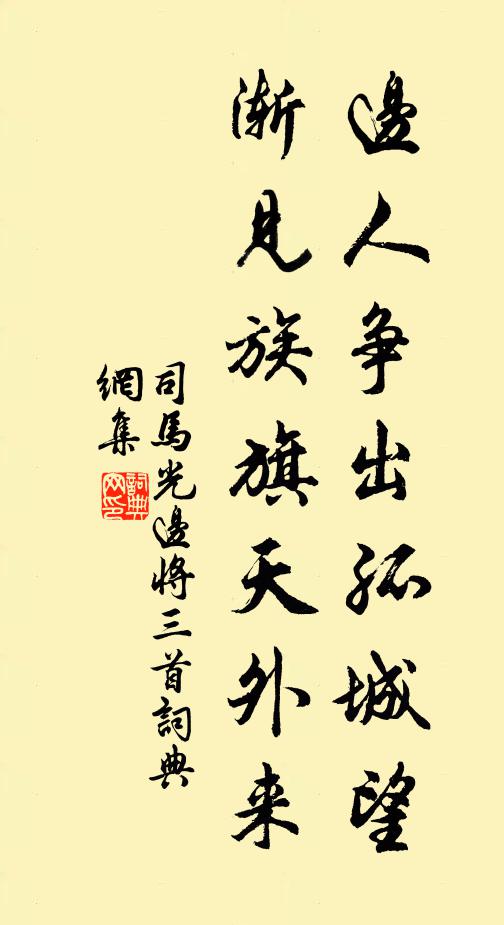 邊人争出孤城望
漸見族旗天外来
司馬光邊將三首詞典
網集
詞典
网印